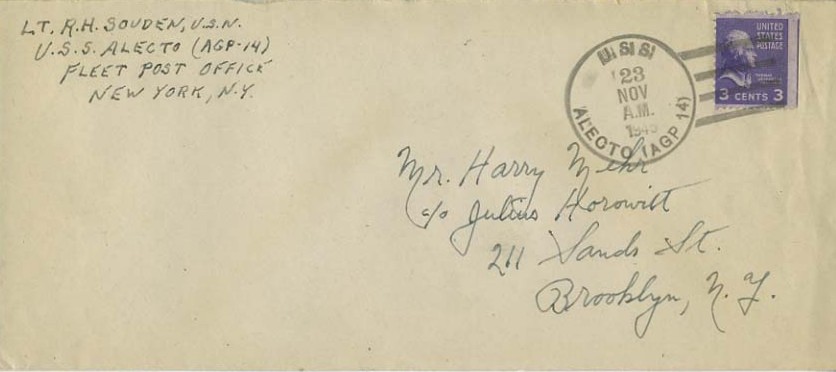 LT. R.H. SOUDEN, U.S.N.
U.S.S. ALECTO (AGP-14)
FLEET POST OFFICE
NEW YORK, N.Y.
U.S.S.
23
NOV
A.M.
194
ALECTO (AGP 14)
UNITED
STATES
POSTAGE
3 CENTS 3
Mr. Harry Mehr
c/o Julius Horowitt
211 Sands St.
Brooklyn, N.Y.